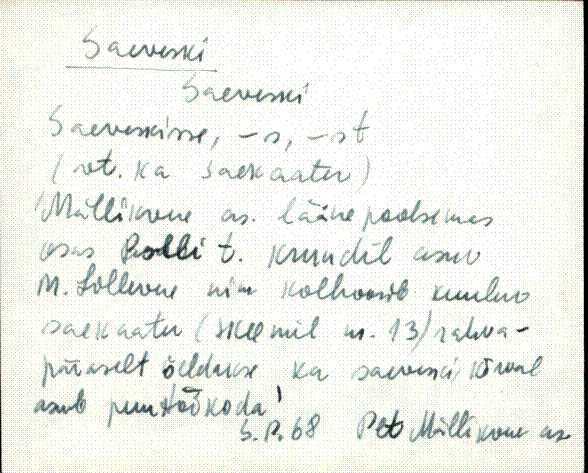 Saeveski
Saeveski
Saeveskisse, -s, -st
(vt. ka Saekaater)
Mällikvere as. läänepoolsemas
osas t. krundil asuv
M. nim kolhoosile kuuluv
saekaater (skeemil nr. 13) rahva-
päraselt öeldakse ka saeveski, kõrval
asub puutöökoda
S. P. 68 Mällikvere as